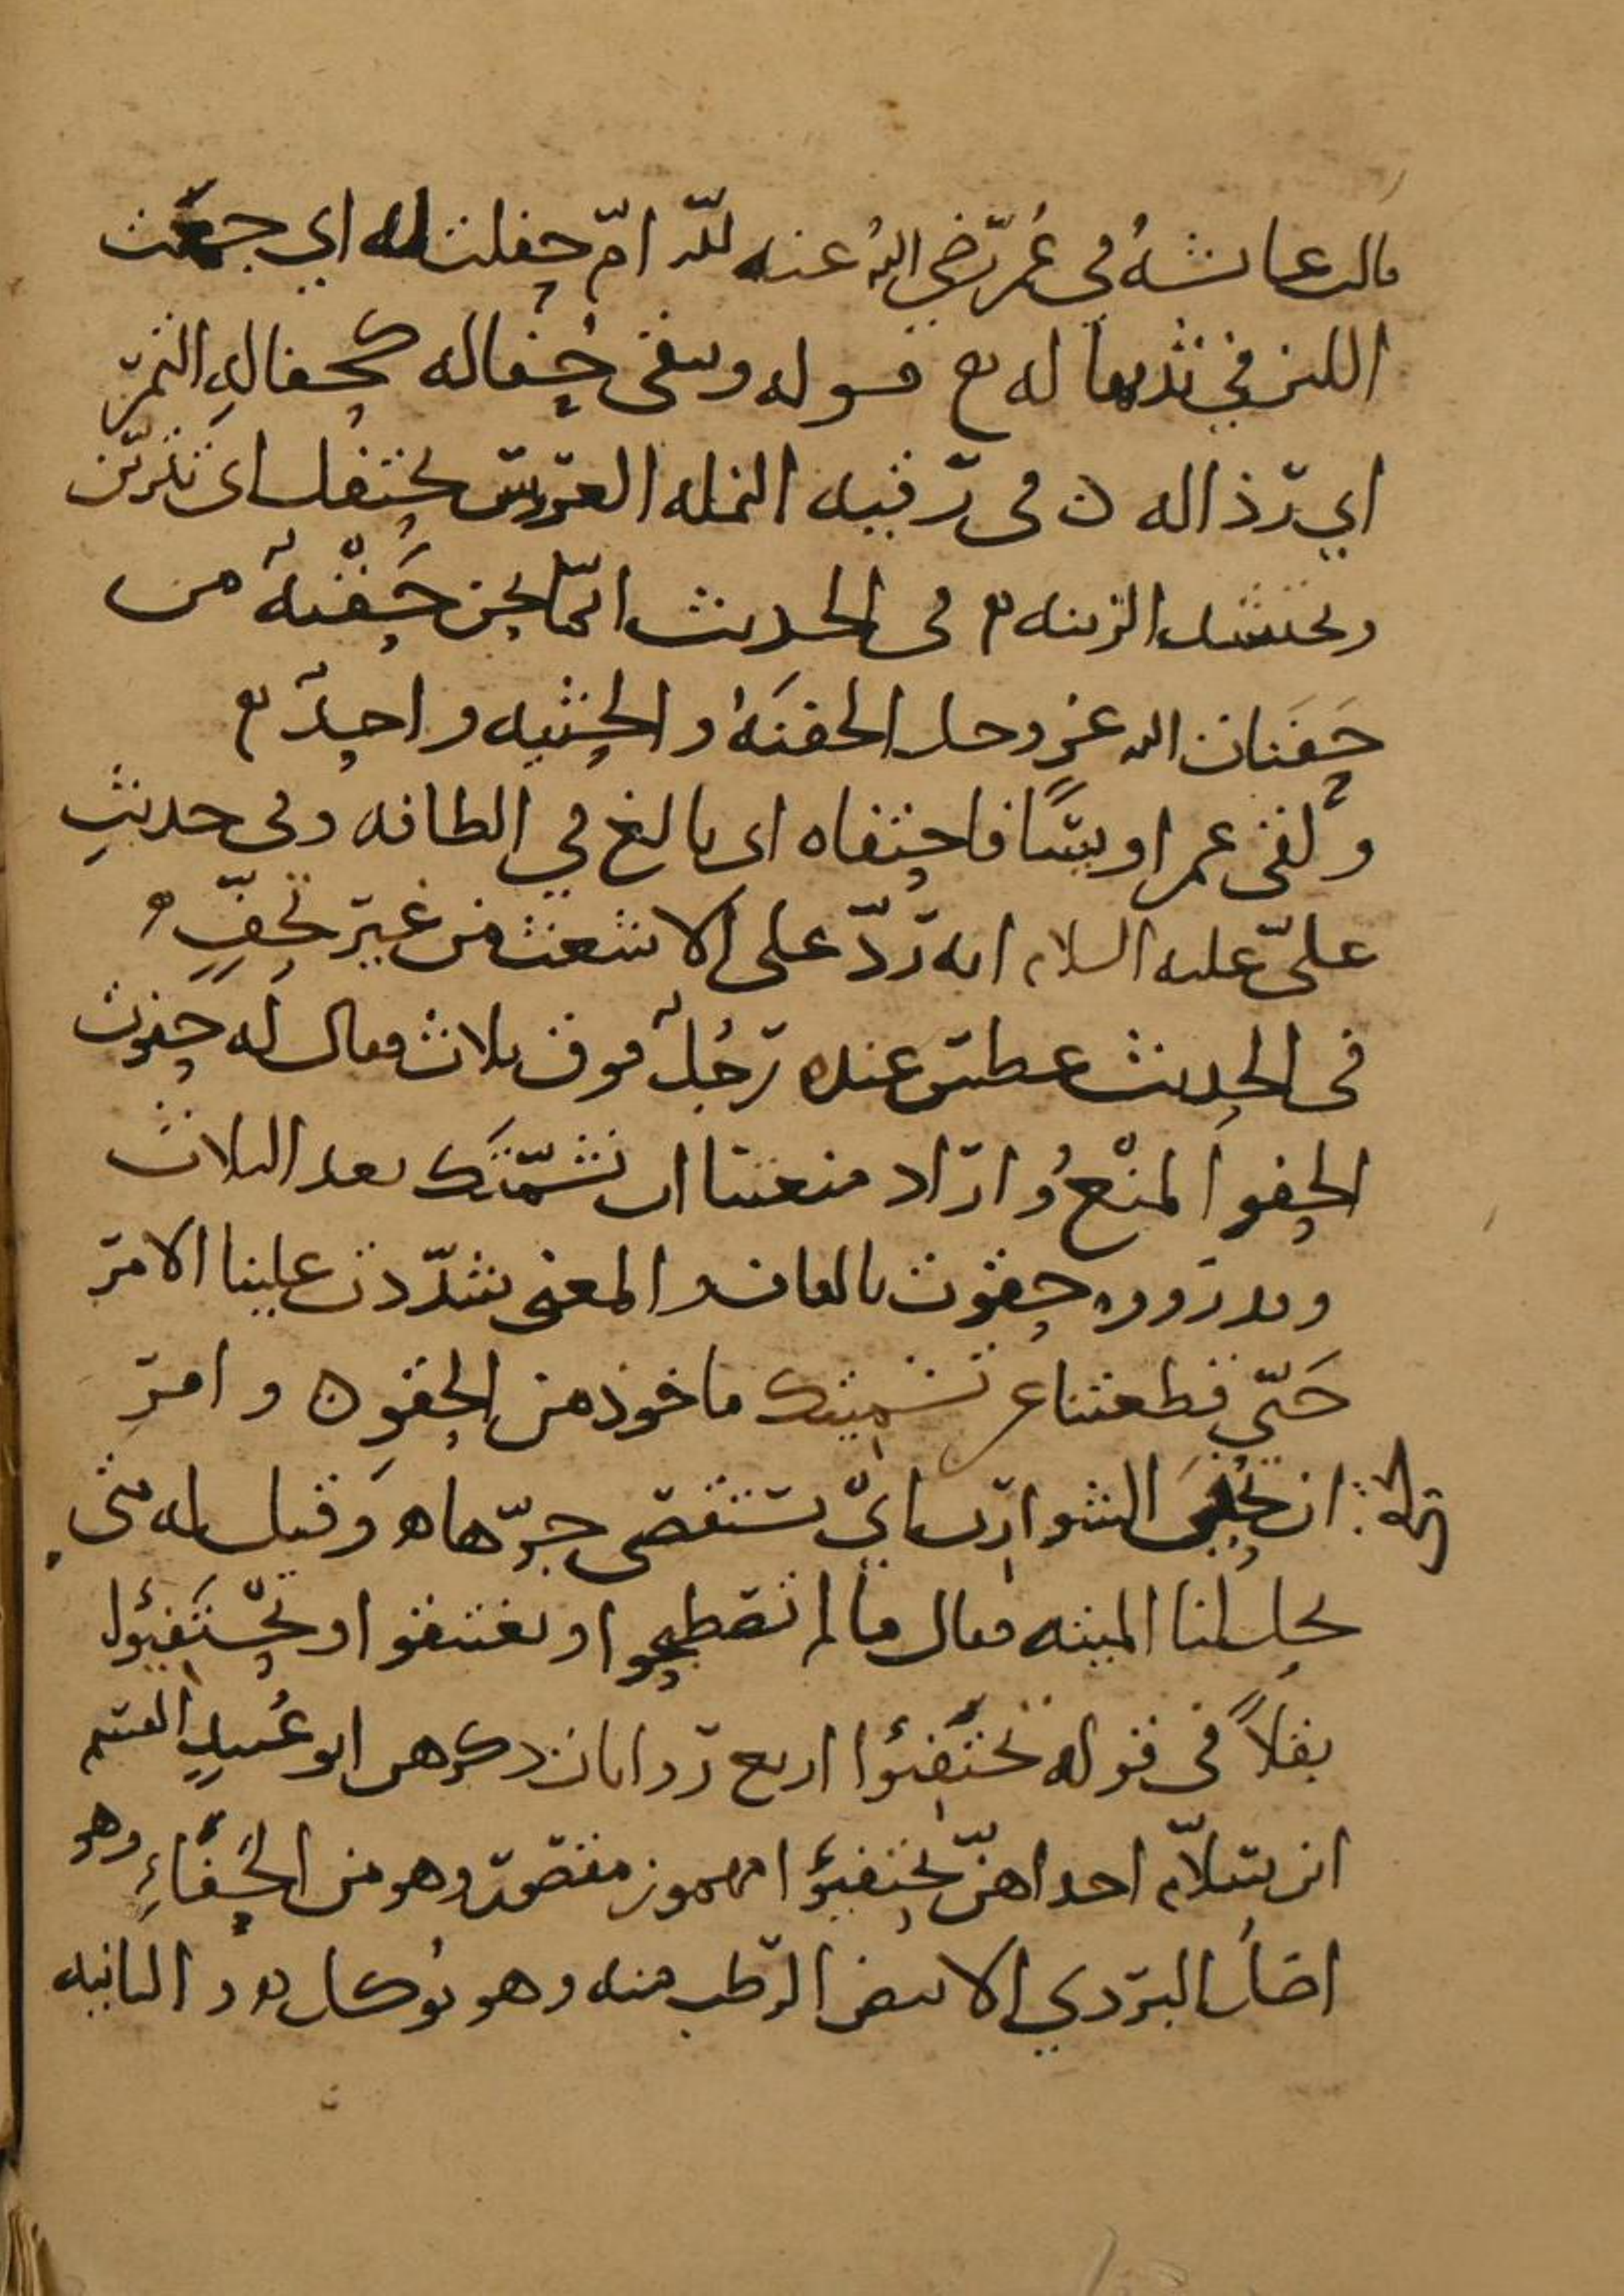 قالت عائشةُ في عُمر رضي اللهُ عنه للّه امّ حفلت له اي جمعت
اللبن في ثديها له قوله وتبقى حُفاله كحفالهِ التمر
اي رذاله في رقيه النمله العروس تحتفل اى تتزين
وتحتشد للزينه في الحديث انّما نحن حَفْنةٌ من
حَفَنات الله عز وجل الحفنَهُ والحثيه واحدٌ
ولقى عمر اويسًا فاحتفاه اى بالغ في الطافه وفي حديثِ
عليّ عليه السلام انه ردّ على الاشعث من غير تحفٍّ
في الحديث عطس عنده رجُلٌ فوق ثلاث فقال له حفوت
الحفو المنْعُ واراد منعتنا ان نشمّتَك بعد الثلاث
وقد رووه حقوت بالقاف والمعنى شدّدت علينا الامر
حَتّى قطعتنا عن تشميتك ماخوذ من الحقو وامر
ان تُحفَى الشوارب ايْ يستقصى جزّها وقيل له متى
تحل لنا الميته فقال ما لم تصطبحوا او تغتبقوا او تحْتَفِئوا
بقلاً في قوله تحتَفِئوا اربع روايات ذكرهن ابو عُبيدٍ القسم
ان سلّام احداهنّ تحتفئوا مهموز مقصور وهو من الحَفَاءِ وهو
اصلُ البردي الابيض الرطب منه وهو يُوكل والثانيه